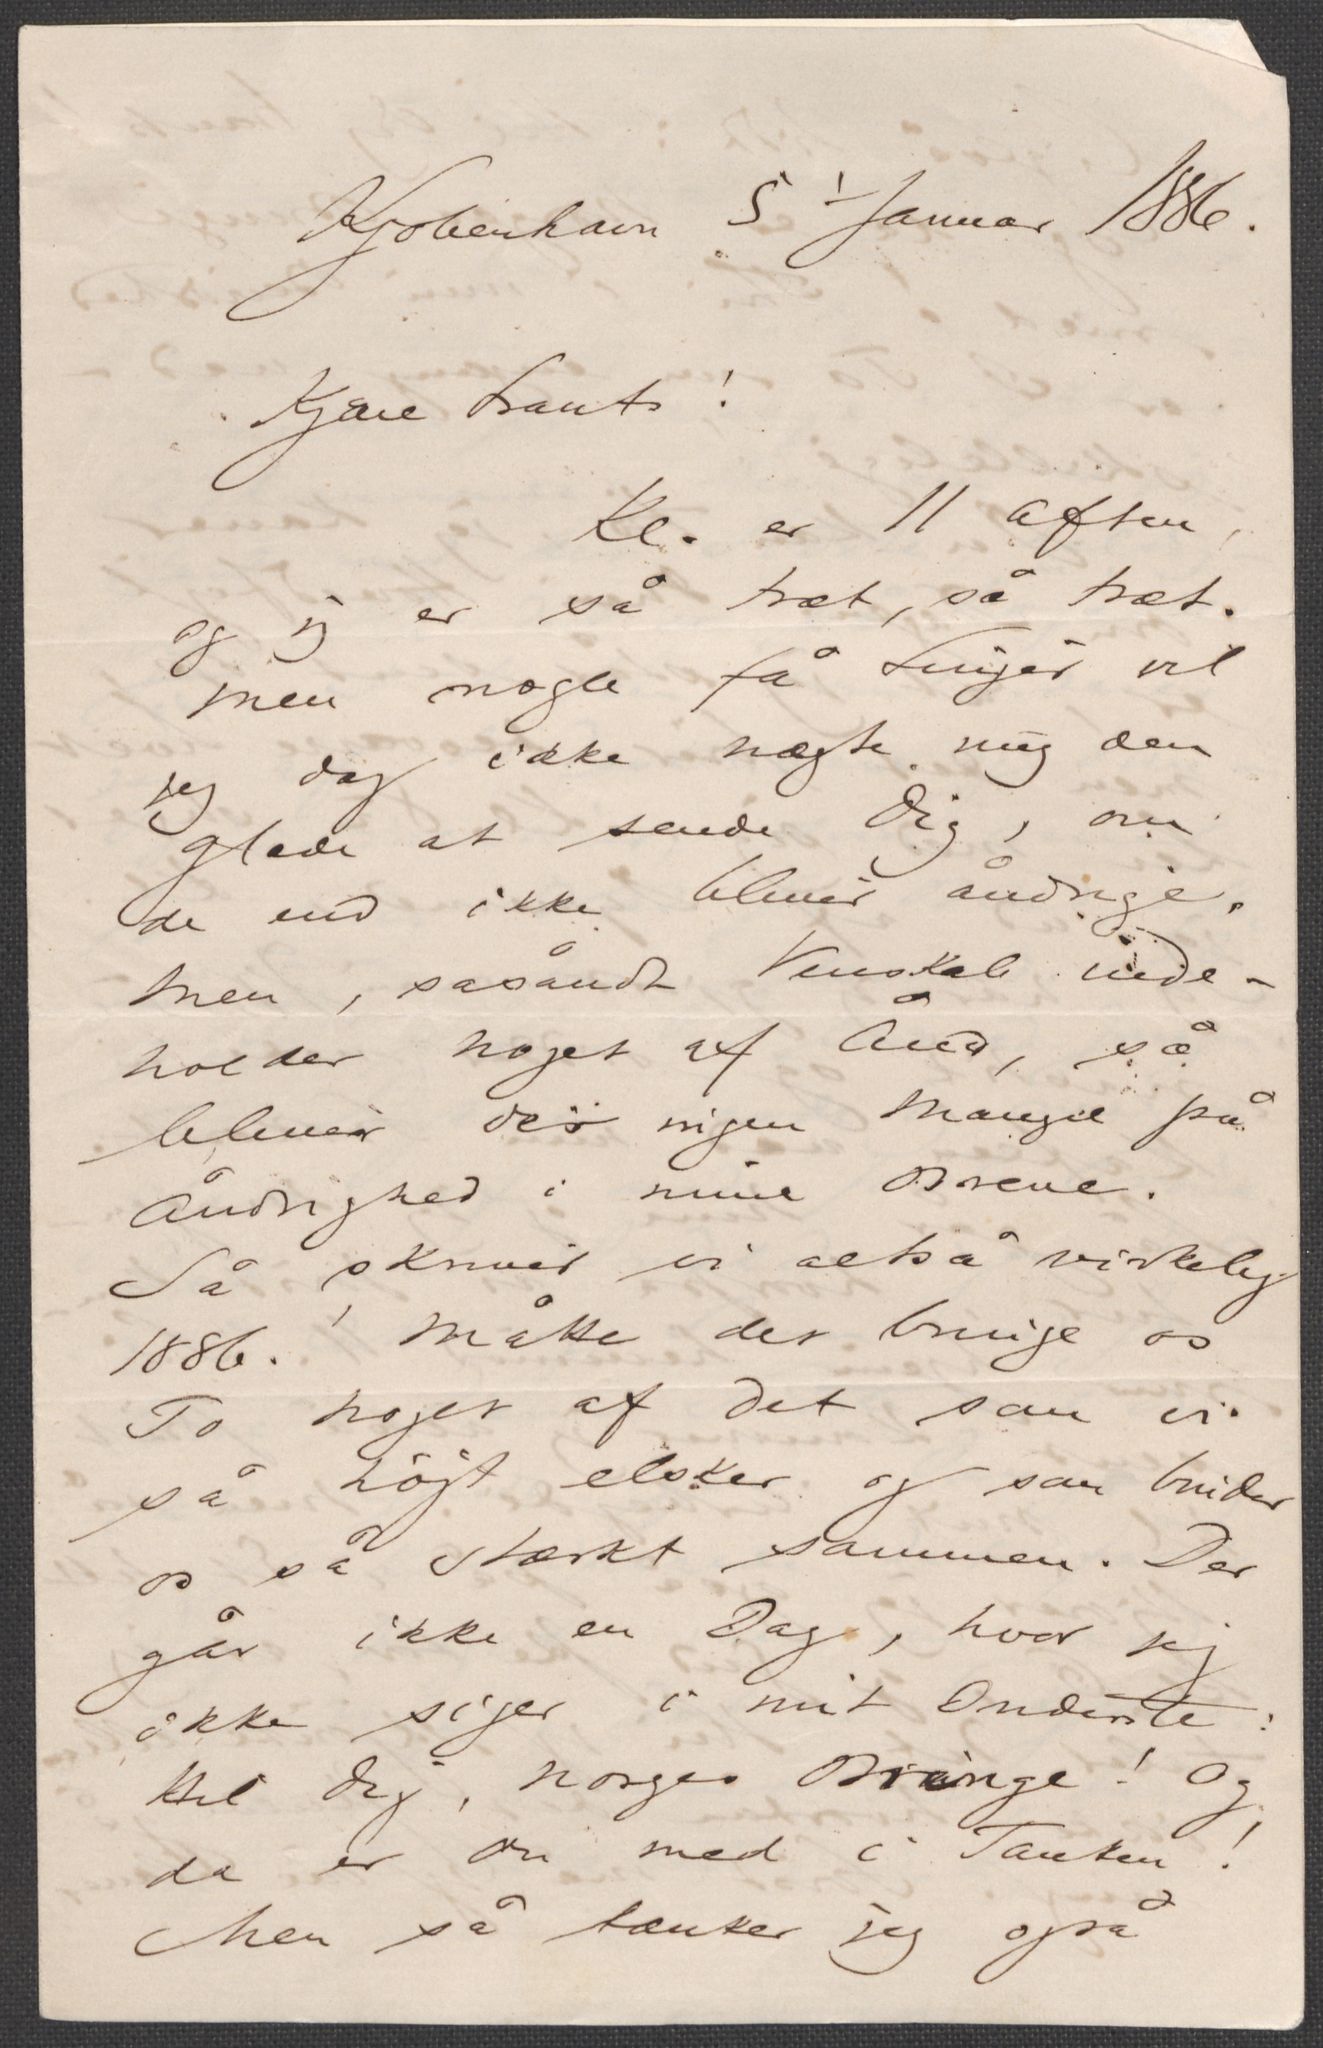 Kjøbenhavn 5te Januar 1886.
Kjære Frants!
Kl. er 11 aften,
og jeg er så træt, så træt.
Men nogle få Linjer vil
jeg dog ikke nægte mig den
glæde at sende Dig, om
de end ikke bliver åndrige.
Men, såsandt Venskab inde-
holder noget af Ånd, så
bliver der ingen Mangel på
Åndrighed i mine Breve.
Så skriver vi altså virkelig
1886. Måtte det bringe os
To noget af det som vi
så højt elsker og som binder
os så stærkt sammen. Der
går ikke en Dag, hvor jeg
ikke siger i mit Inderste:
Hil dig, Norges Bringe! Og
da er Du med i Tanken!
Men så tænker jeg også